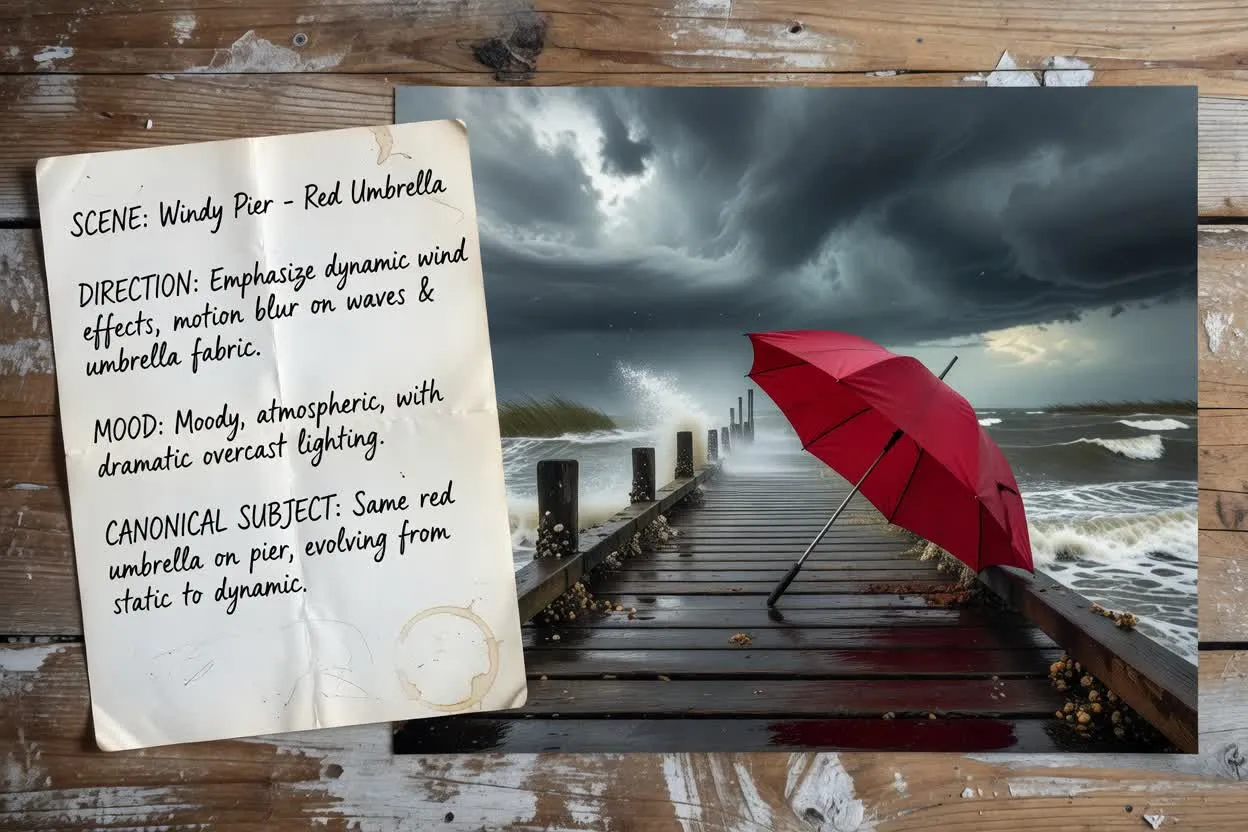 SCENE: Windy Pier - Red Umbrella
DIRECTION: Emphasize dynamic wind
effects, motion blur on waves &
umbrella fabric.
MOOD: Moody, atmospheric, with
dramatic overcast lighting.
CANONICAL SUBJECT: Same red
umbrella on pier, evolving from
static to dynamic.